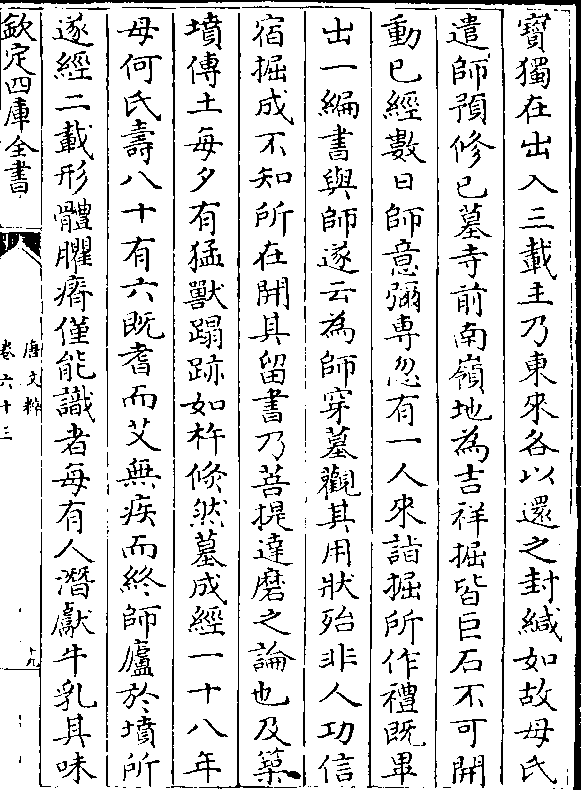 寶獨在出入三載主乃東來各以還之封緘如故母氏
遣師預修已墓寺前南嶺地為吉祥掘皆巨石不可開
動已經數日師意彌専忽有一人來詣掘所作禮既畢
出一編書與師遂云為師穿墓觀其用狀殆非人功信
宿掘成不知所在開其留書乃菩提達磨之論也及築
墳傅土每夕有猛獸蹋跡如杵倐然墓成經一十八年
母何氏壽八十有六既耆而艾無疾而終師廬於墳所
遂經二載形體臞瘠僅能識者每有人潛獻牛乳其味
欽定四庫全書
唐文粹
卷六十三
十九